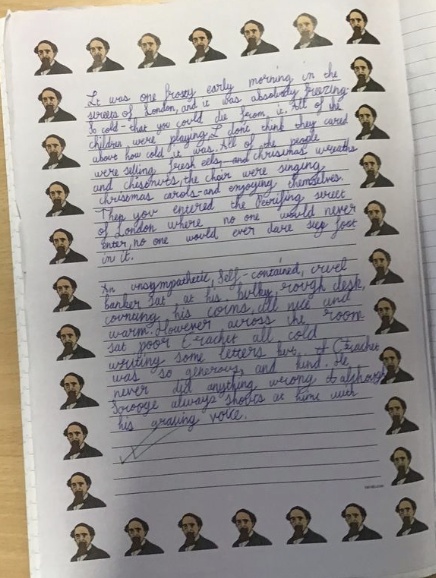 It was one frosty early morning in the
streets of London, and it was absolutely freezing
So cold - that you could die from it. All of the
children were playing I dont think they cared
above how cold it was. All of the people
were selling fresh eels, and chrismas wreaths
and chesnuts, the choir were singing
chrismas carols - and enjoying themselves.
Then you entered the Petrifing street
of London where no one would never
enter, no one would ever dare step foot
in it.
An unsympathetic, self-contained, cruel
banker sat at his bulky, rough desk,
counting his coins all nice and
warm. However across the room
sat poor Crachet all cold
writing some letters
was so generous, and kind. He
never did anything wrong although
Scrooge always shouts at him with
his grating voice.